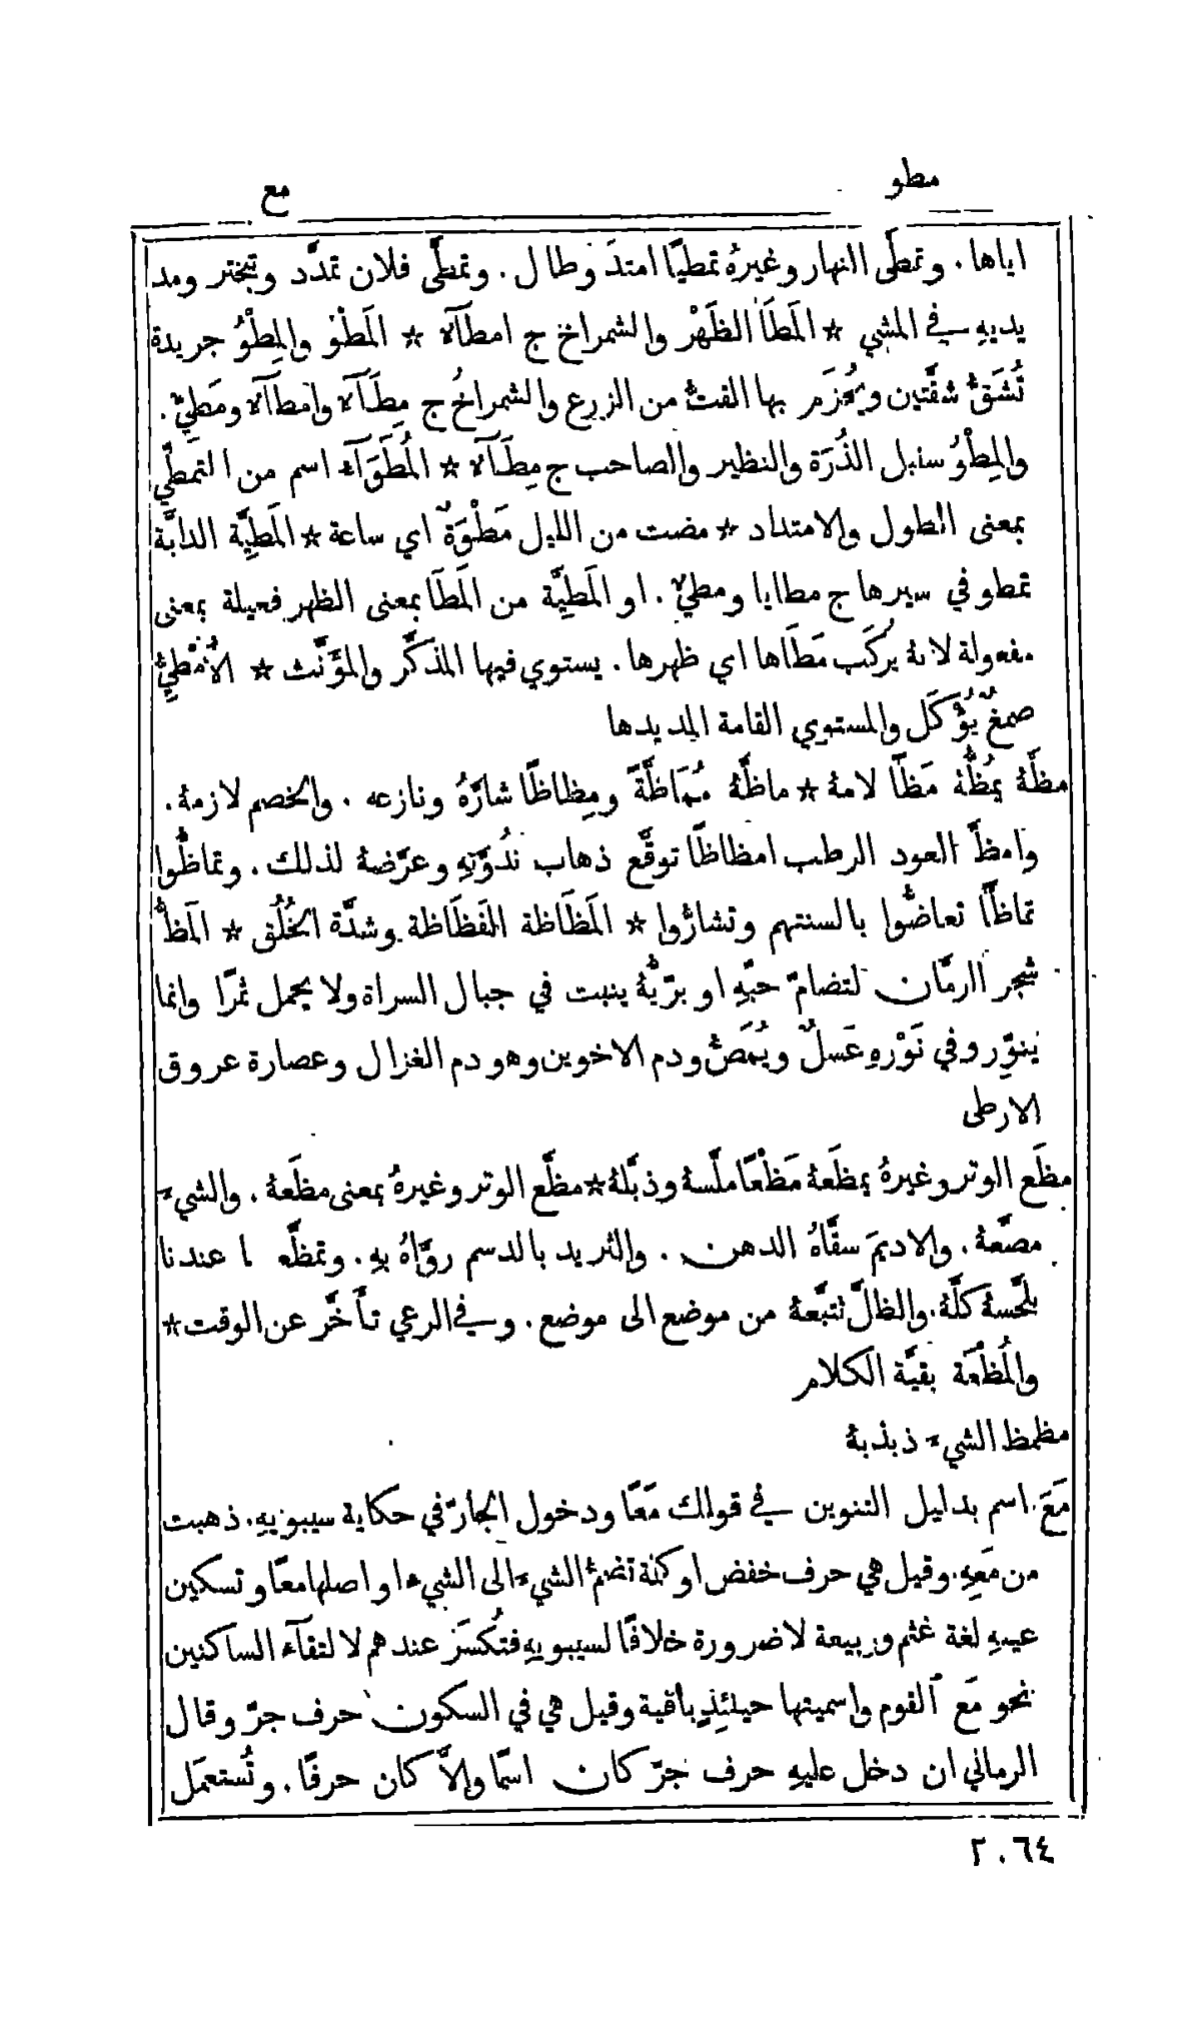 مطو
مع
اياها. وتمطَّى النهار وغيرهُ تمطيًّا امتدَّ وطال. وتمطَّى فلان تمدَّد وتبختر ومد
يديهِ في المشي * المَطَا الظَهْر والشمراخ ج امطآلا * المَطْو والمِطْوُ جريدة
تُشَقُّ شقَّتين ويُحزَم بها القتُّ من الزرع والشمراخُ ج مِطَآلا وامطآلا ومَطِيّ.
والمِطْوُ سنبل الذُرَة والنظير والصاحب ج مِطَآلا * المُطَوَآءُ اسم من التمطّي
بمعنى الطول والامتداد * مضت من الليل مَطْوَةٌ اي ساعة * المَطِيَّة الدابَّة
تمطو في سيرها ج مطايا ومطيٌّ. او المَطِيَّة من المَطَا بمعنى الظهر فعيلة بمعنى
مفعولة لانهُ يُركَب مَطَاها اي ظهرها. يستوي فيها المذكَّر والمؤَنَّث * الأُمْطِيُّ
صمغٌ يُؤْكَل والمستوي القامة المديدها
مظَّهُ يمُظُّهُ مَظًّا لامهُ * ماظَّهُ مُمَاظَّةً ومِظاظًا شارَّهُ ونازعه. والخصم لازمهُ.
وامظَّ العود الرطب امظاظًا توقَّع ذهاب نُدُوَّتهِ وعرَّضهُ لذلك. وتماظُّوا
تماظًّا تعاضُّوا بالسنتهم وتشارُّوا * المَظَاظة الفَظَاظة وشدَّة الخُلُق * المَظُّ
شجر الرمَّان لتضامّ حبّهِ او برّيُّهُ ينبت في جبال السراة ولا يحمل ثمرًا وانما
ينوِّر وفي نَوْرهِ عَسلٌ ويُمَصُّ ودم الاخوين وهو دم الغزال وعصارة عروق
الارطى
مظَع الوتر وغيرهُ يمظَعهُ مَظْعًا ملَّسهُ وذبَّلهُ * مظَّع الوتر وغيرهُ بمعنى مظَعهُ. والشيءَ
مصَّعهُ. والاديمَ سقَّاهُ الدهن. والثريد بالدسم روَّاهُ بهِ. وتمظَّع ما عندنا
تلحَّسهُ كلَّهُ. والظلَّ تتبَّعهُ من موضع الى موضع. وفي الرعي تأَخَّر عن الوقت *
والمُظْعَة بقيَّة الكلام
مظمظ الشيءَ ذبذبهُ
مَعَ اسم بدليل التنوين في قولك مَعًا ودخول الجارّ في حكاية سيبويهِ. ذهبت
من مَعِهِ. وقيل هي حرف خفض او كلمة تضمُّ الشيءَ الى الشيءِ او اصلها معًا وتسكين
عينهِ لغة غنم وربيعة لا ضرورة خلافًا لسيبويهِ فتُكسَر عندهم لالتقآءِ الساكنين
نحو مَعِ القوم واسميتها حينئِذٍ باقية وقيل هي في السكون حرف جرّ وقال
الرماني ان دخل عليهِ حرف جرّ كان اسمًا وإلاَّ كان حرفًا. وتُستعمَل
٢٠٦٤